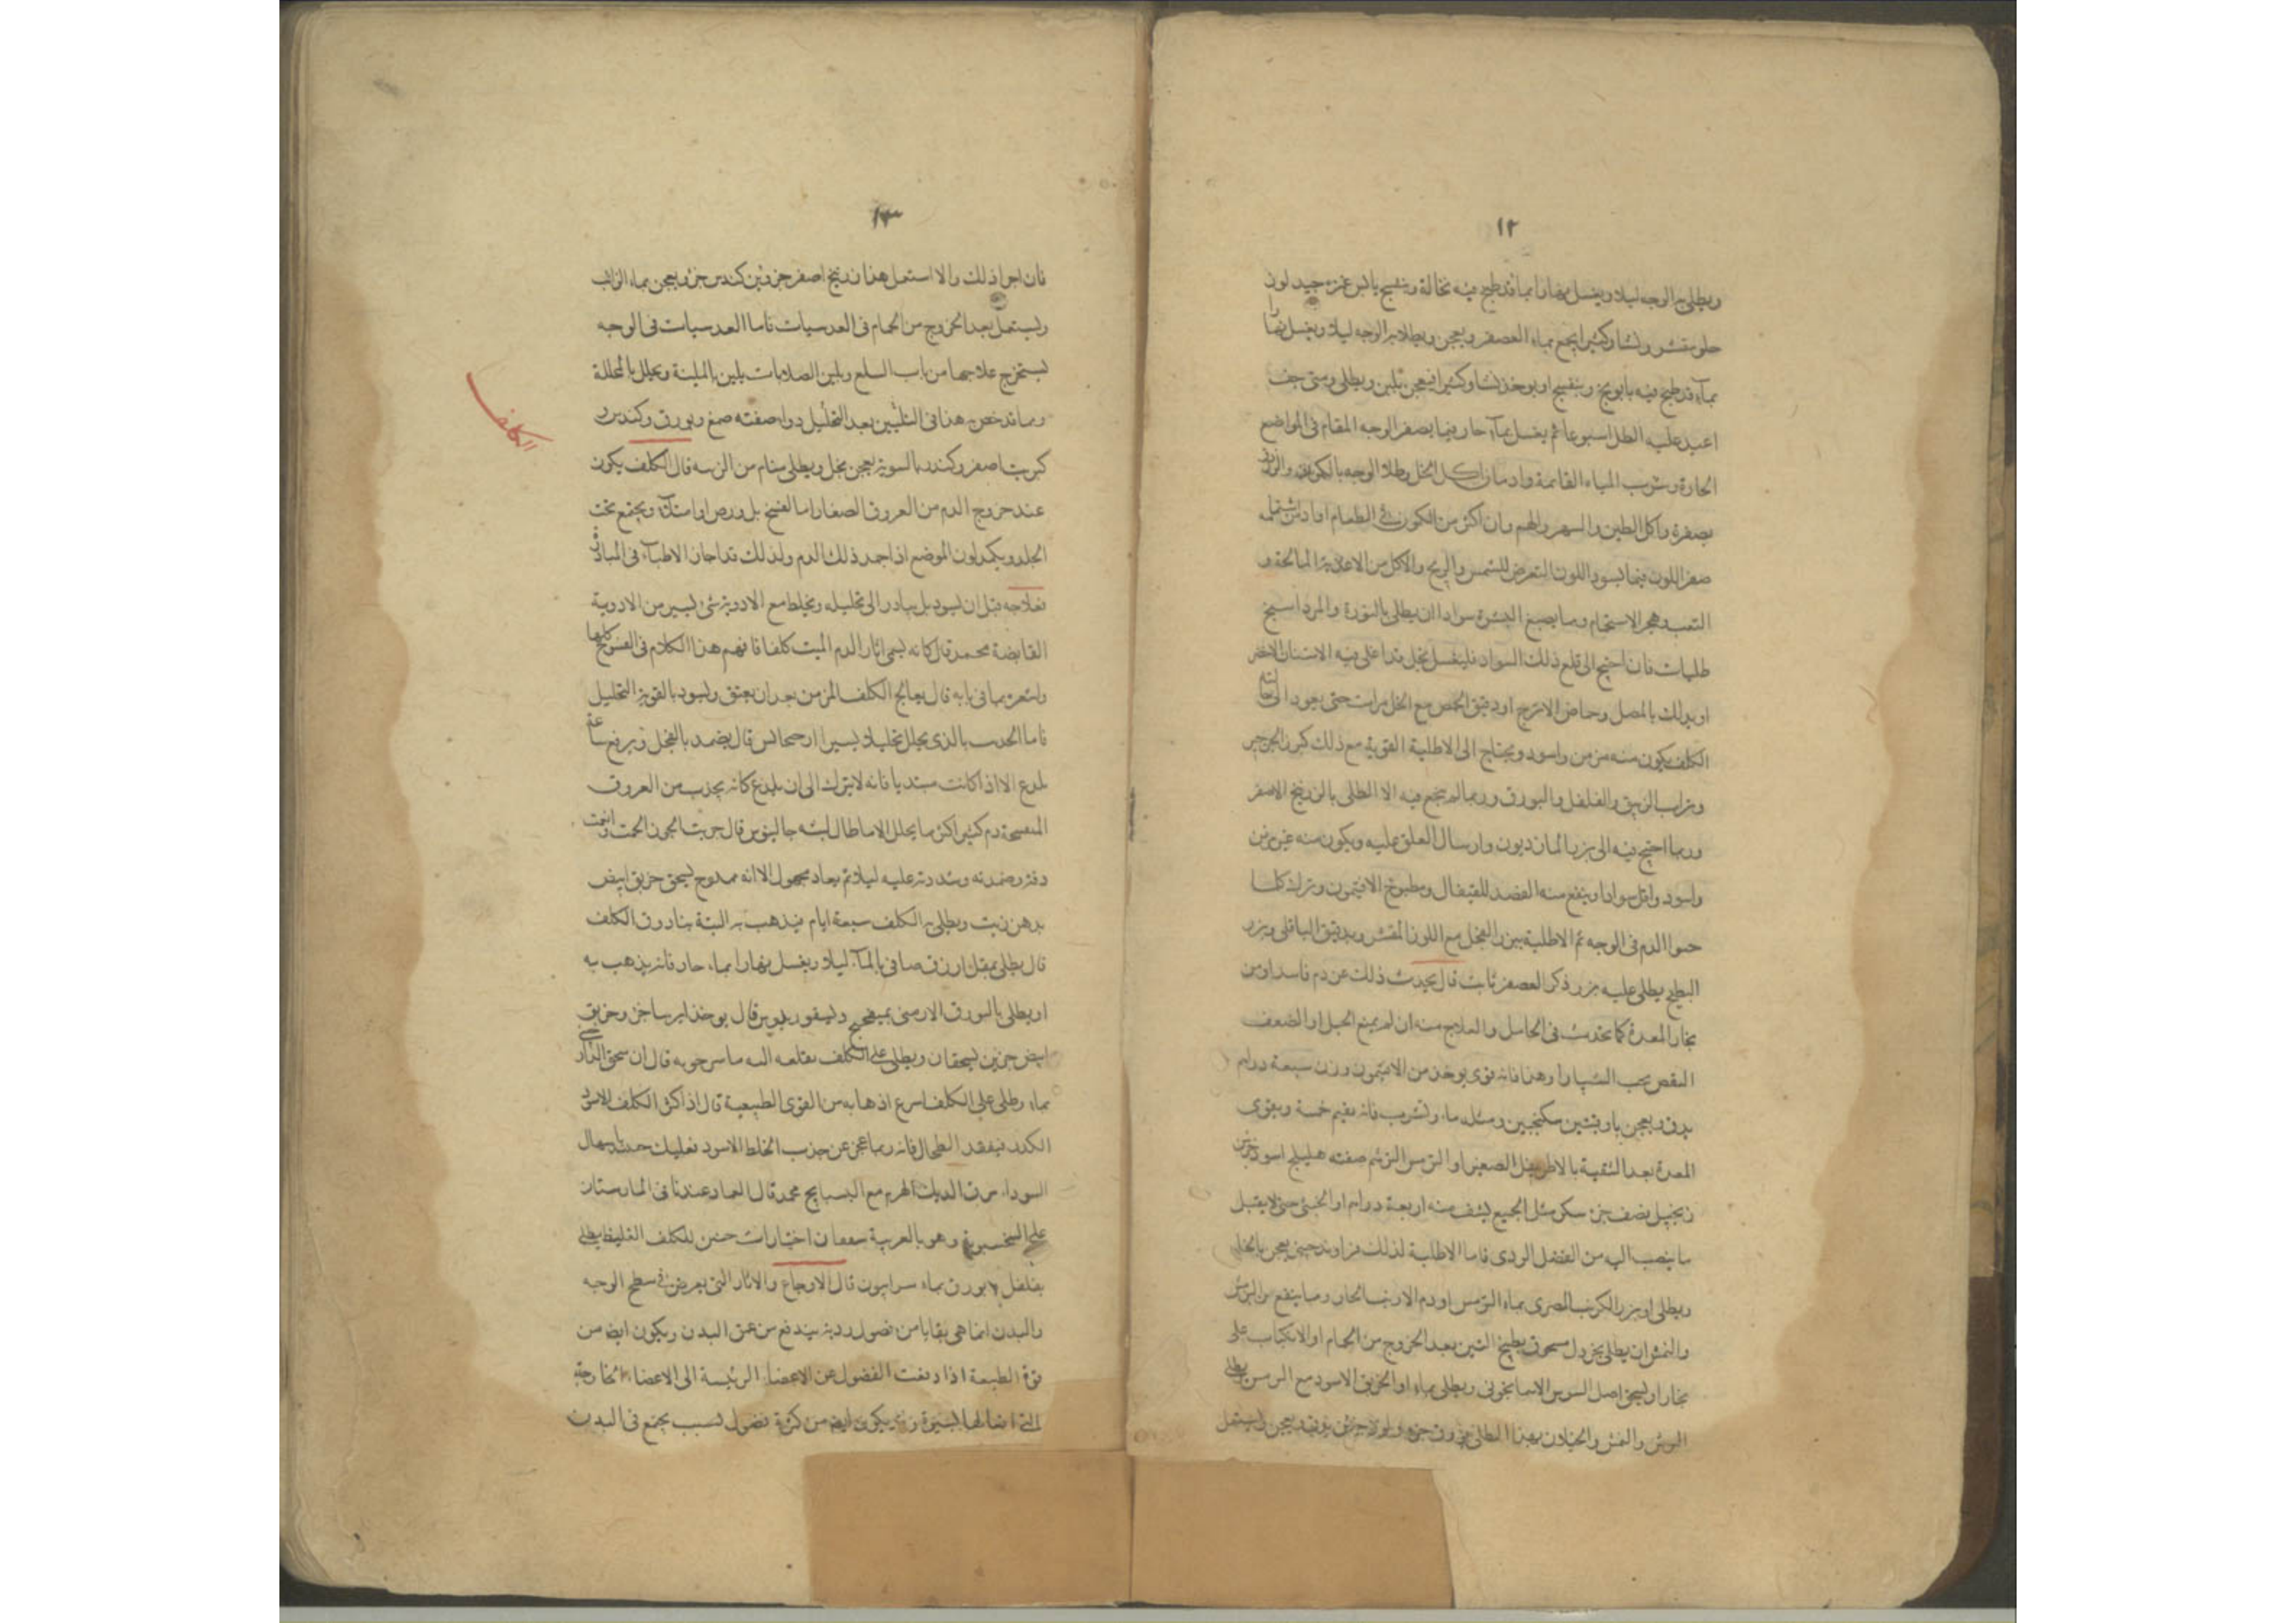 ١٢
ويطلى به الوجه ليلا ويغسل نهارا بماء قد طبخ فيه نخالة وبنفسج يابس غيره جيد لوز
حلو مقشر ونشا وكثيرا يجمع بماء العصفر ويعجن ويطلا به الوجه ليلا ويغسل نهارا
بماء قد طبخ فيه بابونج وبنفسج او يوخذ نشا وكثيرا فيعجن بلبن ويطلى ومتى جف
اعيد عليه الطلا اسبوعا ثم يغسل بماء حار فيما يصفر الوجه المقام فى المواضع
الحارة وشرب المياه القائمة وادمان اكل الخل وطلا الوجه بالكمون والزاق
بصفرة واكل الطين والسهر والهم وان اكثر من الكمون فى الطعام او ادمن شمه
صفر اللون فيما يسود اللون التعرض للشمس والريح والاكل من الاغذية المالحة و
التعب وهجر الاستحمام ومما يصبغ البشرة سوادا ان يطلى بالنورة والمرداسنج
طليات فان احتيج الى قلع ذلك السواد فليغسل بخل قد اغلى فيه الاشنان الاخضر
او يدلك بالمصل وحماض الاترج او دقيق الحمص مع الخل مرات حتى يعود الى حالته
الكلف يكون منه مزمن واسود ويحتاج الى الاطلية القوية مع ذلك كبزر الجرجير
وتراب الزيبق والفلفل والبورق وربما لم ينجع فيه الا الطلى بالزرنيخ الاصفر
وربما احتيج فيه الى وارسال العلق عليه ويكون منه غير مزمن
واسود واقل سوادا وينفع منه الفصد للقيفال ومطبوخ الافتيمون وترك كلما
حموا الدم فى الوجه ثم الاطلية ببزر الفجل مع اللوز المقشر وبدقيق الباقلى وبزر
البطيخ يطلى عليه بزر ذكر العصفر ثابت قال يحدث ذلك عن دم فاسد او من
بخار المعدة كما يحدث فى الحامل والعلاج منه ان لم يمنع الحبل او الضعف
النقص بحب الشبيارا وهذا فانه قوى يوخذ من الافتيمون وزن سبعة دراهم
يدق ويعجن باوقيتين سكنجبين ومثله ماء ويشرب فانه يقيم خمسة ويقوى
المعدة بعد التنقية بالاطريفل الصغير او صفته هليلج اسود جزئين
زنجبيل نصف جزء سكر مثل الجميع يشف منه اربعة دراهم او الخبثى حتى لا يقبل
ما ينصب اليه من الفضل الردى فاما الاطلية لذلك فراوند صينى يعجن بالخل
ويطلى او بزر الكرنب المصرى بماء الترمس او دم الارنب الحار ومما ينفع من البرش
والنمش ان يطلى بخردل مسحوق بطبيخ التين بعد الخروج من الحمام او الانكباب على
بخار او يسحق اصل السوسن الاسمانجونى ويطلى بماء او الخربق الاسود مع الرمس يطلى
البرش والنمش والخيلان بهذا الطلى جزء ويدق ويعجن ويستعمل
١٣
فان اجزا ذلك والا استعمل هذا زرنيخ اصفر جزوين كندس جزو يعجن بماء الرايب
ويستعمل بعد الخروج من الحمام فى العدسيات فاما العدسيات فى الوجه
يستخرج علاجها من باب السلع وتليين الصلابات يلين بالملينة ويحلل بالمحللة
ومما قد خص به هذا فى التليين بعد التحليل دواء صفته صمغ وبورق وكندس و
كبريت اصفر وكندر بالسوية يعجن بخل ويطلى منام من الزينه قال الكلف يكون
عند خروج الدم من العروق الصغار اما لفسخ بل ورض او امتلاء ويجتمع تحت
الجلد ويكمد لون الموضع اذا جمد ذلك الدم ولذلك قد احاز الاطباء فى المبادرة
بعلاجه قبل ان يسود بل يبادر الى تحليله ويخلط مع الادوية شئ يسير من الادوية
القابضة محمد قال كانه يسمى اثار الدم الميت كلفا فافهم هذا الكلام فى الفسوخ كلها
واستعن بما فى بابه قال يعالج الكلف المزمن بعد ان يعتق ويسود بالقوية التحليل
فاما الحديث بالذى يحلل تحليلا يسيرا ارجحانس قال يضمد بالفجل ويرفع ساعة
يلدغ الا اذا كانت مبتديا فانه لا يترك الى ان يلدغ كانه يجذب من العروق
المنفسخة دم كثير اكثر مما يحلل الا ما طال لبثه جالينوس قال جربت المجون الخمت وانعمت
دقه وضمدته وشددته عليه ليلا ثم يعاد مجهول الا انه ممدوح يسحق خربق ابيض
بدهن زيت ويطلى به الكلف سبعة ايام فيذهب به البتة بنادوق الكلف
قال يطلى بمقل ازرق صافى بالماء ليلا ويغسل نهارا بماء حار فانه يذهب به
او يطلى بالبورق الارمنى بميفختج ديسقوريدوس قال يوخذ ايرسا جزء وخربق
ابيض جزين يسحقان ويطلى على الكلف بقلعه البتة ماسرجويه قال ان سحق الدارصينى
بماء وطلى على الكلف اسرع اذهابه من القوى الطبيعية قال اذا كثر الكلف الاسود
الكدر فيفقد الطحال فانه ربما عجز عن جذب الخلط الاسود فعليك حينئذ باسهال
السوداء مرق الديك الهرم مع البسبايج محمد قال العماد عندنا فى المارستان
على السخسبويه وهو بالعربية اختيارات حنين للكلف الغليظ يطلى
بفلفل وبورق بماء سرابيون قال الاوجاع والاثار التى يعرض فى سطح الوجه
والبدن انما هى بقايا من فضول ردية يندفع من عمق البدن ويكون ايضا من
قوة الطبيعة اذا دفعت الفضول عن الاعضاء الرئيسة الى الاعضاء الخارجة
البشرة وقد يكون ايضا من كثرة فضول لسبب يجتمع فى البدن
الكلف